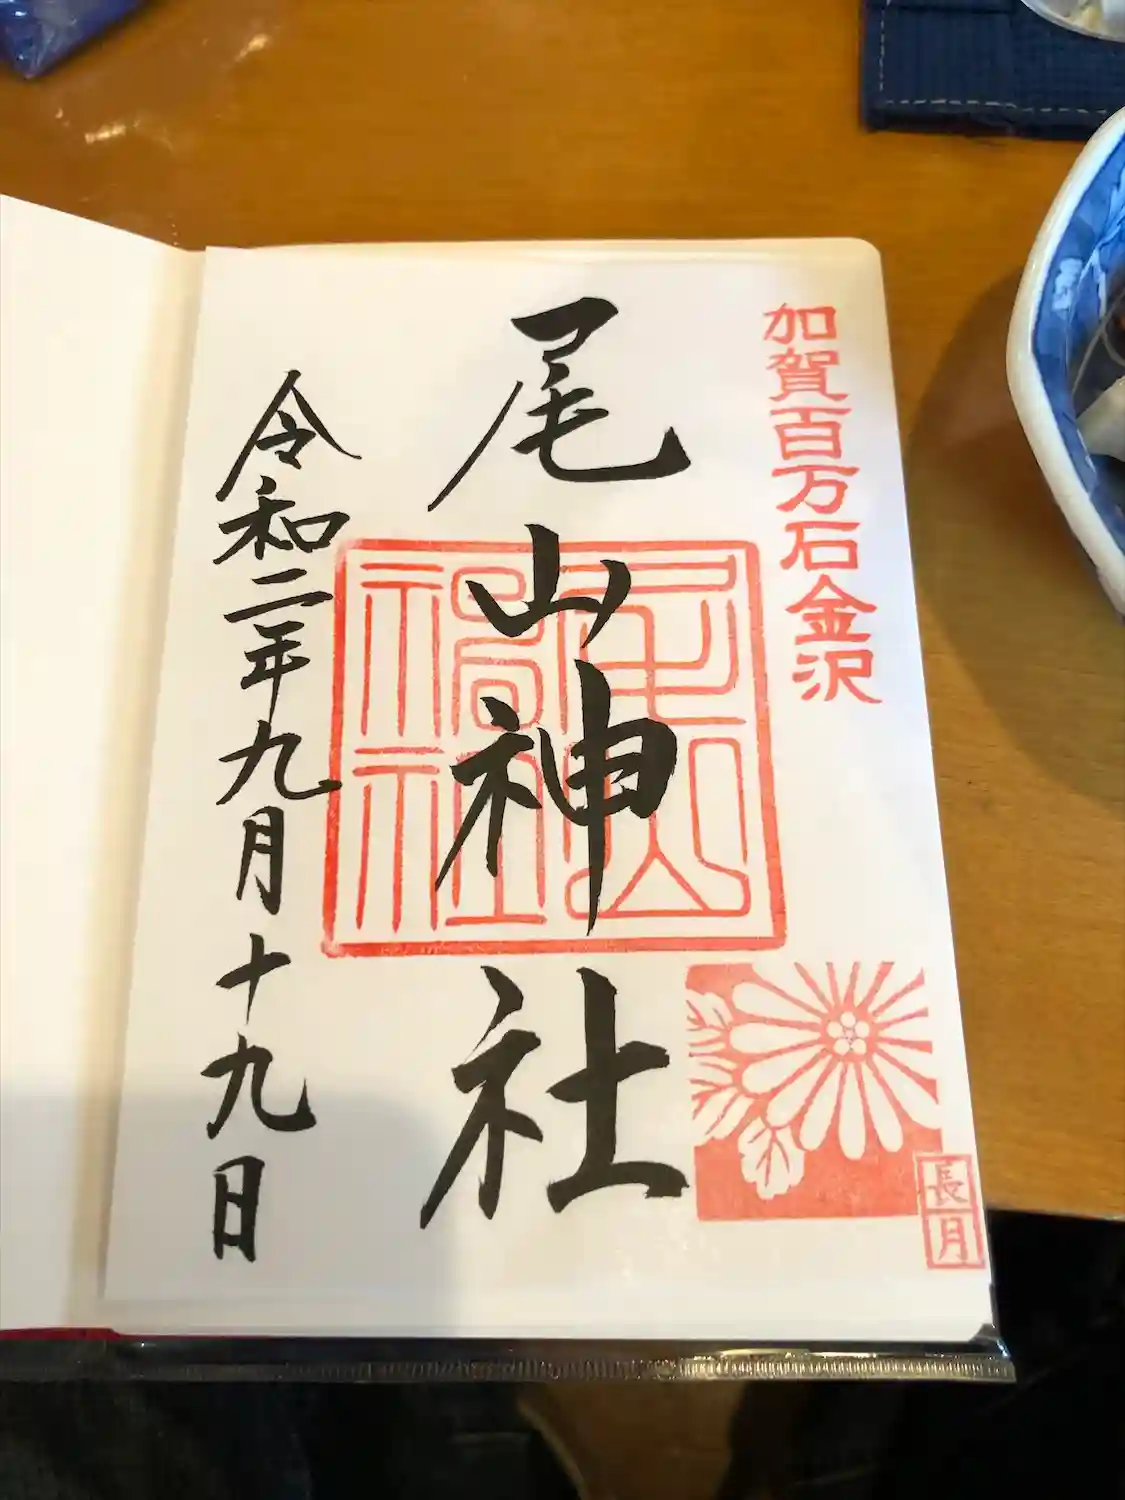 加賀百万石金沢
尾山神社
尾山神社
令和二年九月十九日
長月